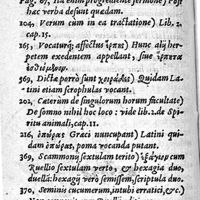 Pag. 67, Ita enim progrediente sermone) Post
hæc verba desunt quædam.
104, Verum cum in ea tractatione) Lib. 2.
cap. 15.
, Vocaturq; affectus ἕρπης) Hunc alij her
petem excedentem appellant, siue ἕρπητα
ἐσθιόμενον.
369, Dicta porrò sunt χοιράδες) Quidam La-
tini etiam scrophulas vocant.
202, Cæterùm de singulorum horum facultate)
De somno nihil hoc loco: vide lib. 2. de Spi-
ritu animali, cap. 11.
216, Græci nuncupant) Latini qui-
dam poma vocanda putant.
369, Scammonij sextulam tertio) cum
Ruellio sextulam verto, & hexagia duo,
duella: hexagia verò semissem, scriptula duo.
370, Seminis cucumerum, intubi erratici, &c.)